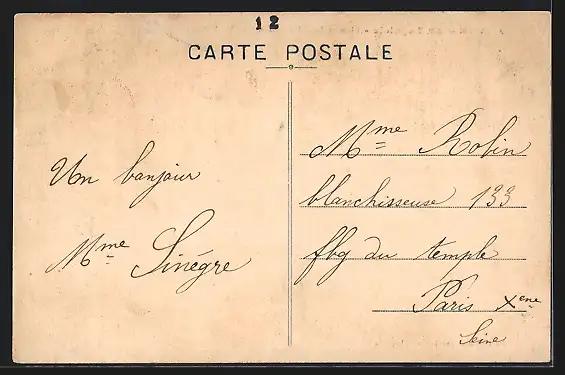 12
CARTE POSTALE
Un bonjour
Mme Sinégre
Mme Robin
blanchisseuse 133
fbg du temple
Paris Xeme
Seine